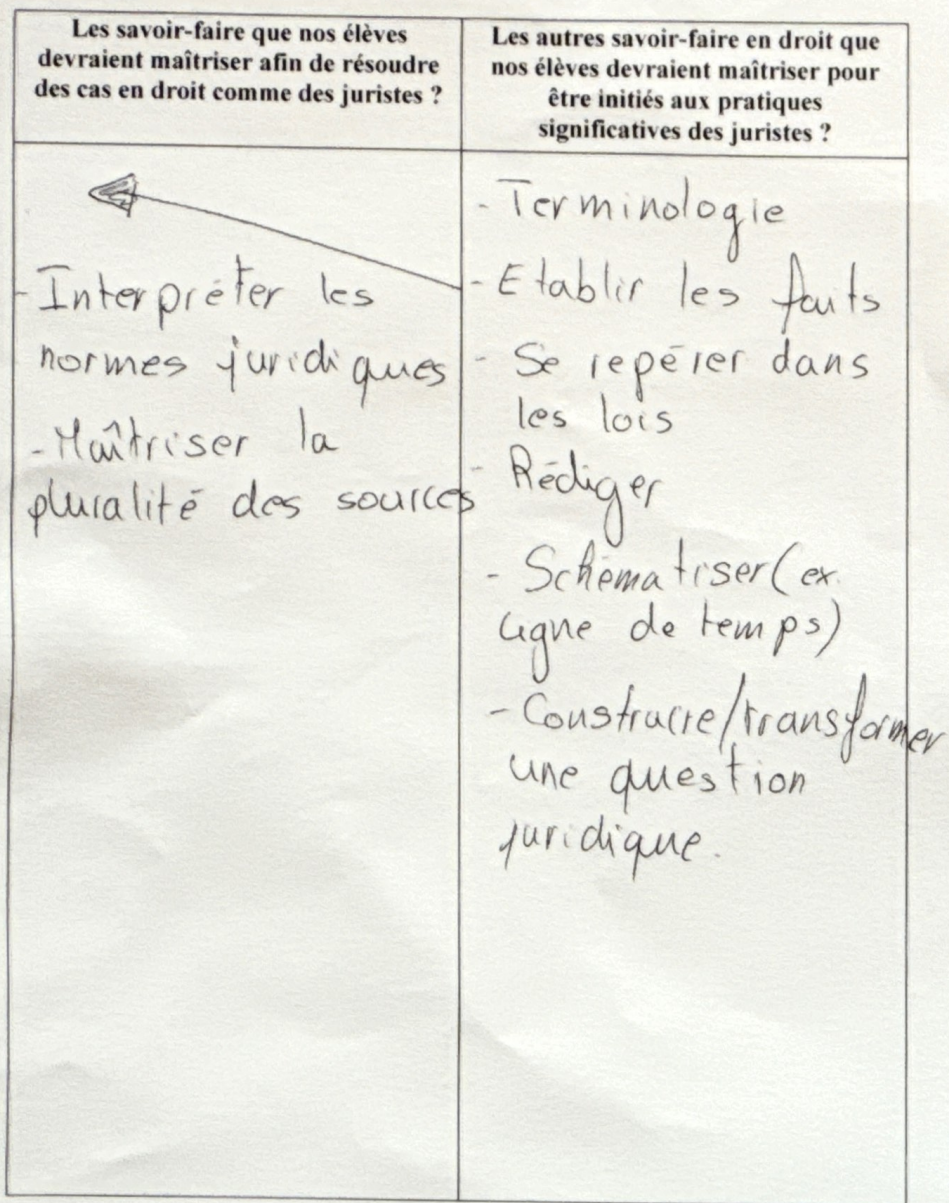 Les savoir-faire que nos élèves
devraient maîtriser afin de résoudre
des cas en droit comme des juristes ?
Les autres savoir-faire en droit que
nos élèves devraient maîtriser pour
être initiés aux pratiques
significatives des juristes ?
- Interpréter les
normes juridiques
- Maîtriser la
pluralité des sources
- Terminologie
- Etablir les faits
- Se repérer dans
les lois
- Rédiger
- Schématiser (ex.
ligne de temps)
- Construire/transformer
une question
juridique.